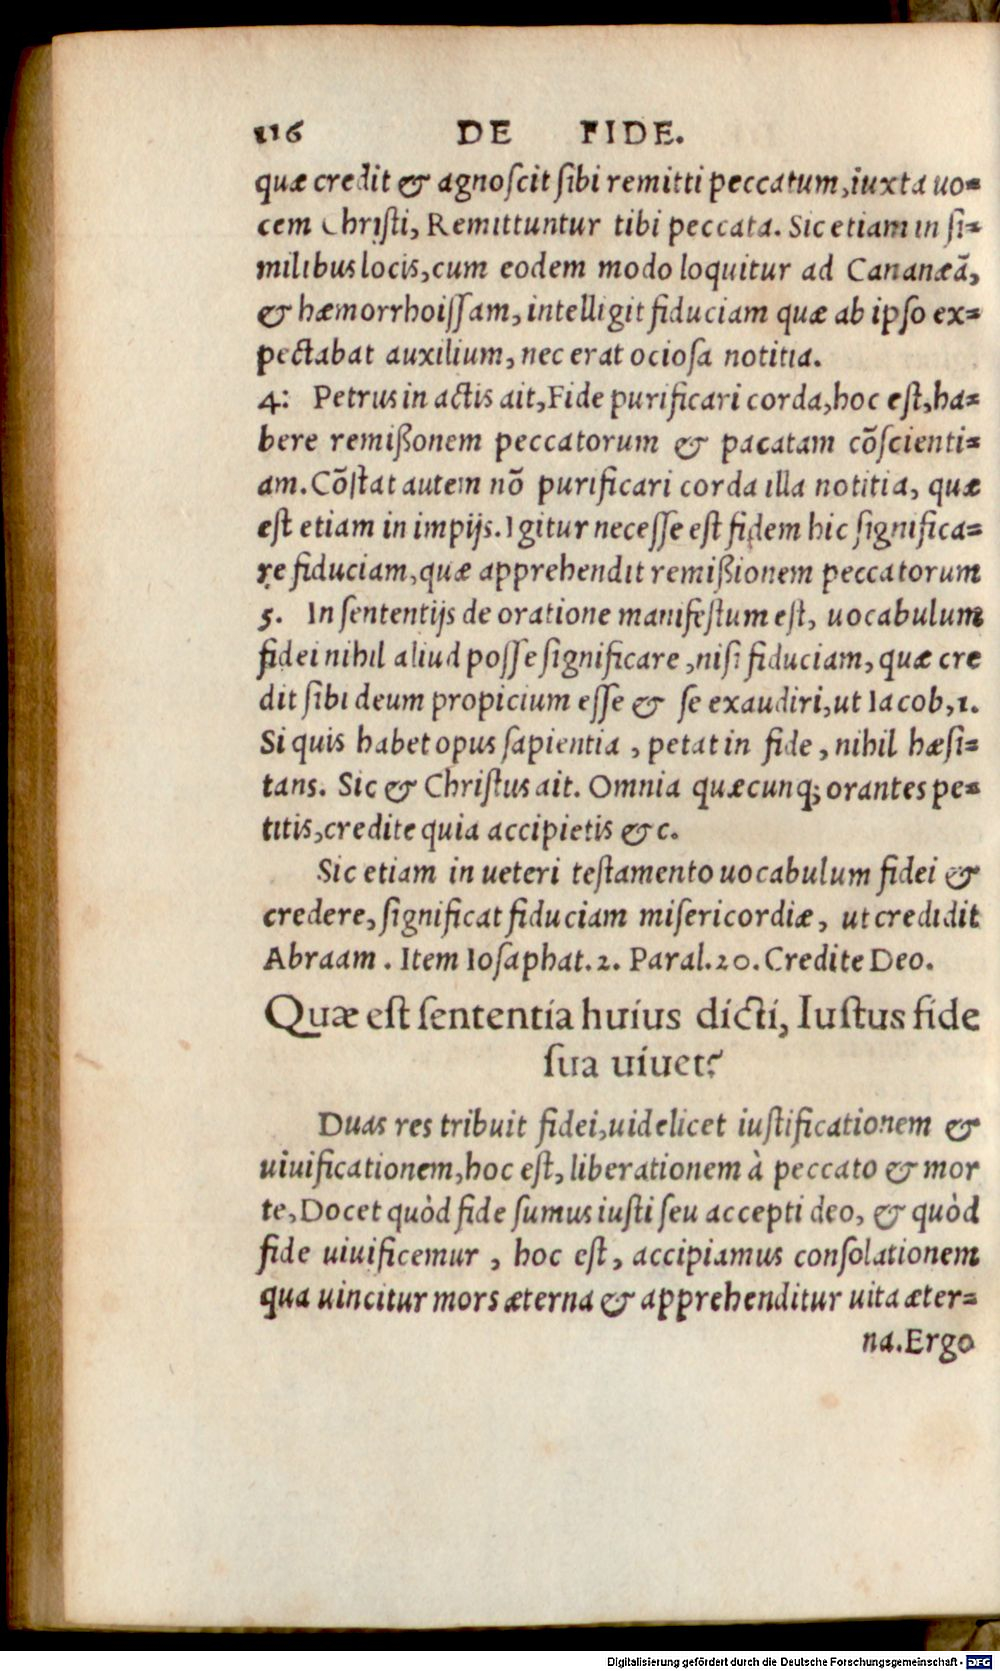 116 DE FIDE.
quæ credit & agnoſcit ſibi remitti peccatum, iuxta uo=
cem Chriſti, Remittuntur tibi peccata. Sic etiam in ſi=
milibus locis, cum eodem modo loquitur ad Cananæã,
& hæmorrhoiſſam, intelligit fiduciam quæ ab ipſo ex=
pectabat auxilium, nec erat ocioſa notitia.
4: Petrus in actis ait, Fide purificari corda, hoc eſt, ha=
bere remißonem peccatorum & pacatam cõſcienti=
am. Cõſtat autem nõ purificari corda illa notitia, quæ
eſt etiam in impijs. Igitur neceſſe eſt fidem hic ſignifica=
re fiduciam, quæ apprehendit remißionem peccatorum
5. In ſententijs de oratione manifeſtum eſt, uocabulum
fidei nihil aliud poſſe ſignificare, niſi fiduciam, quæ cre
dit ſibi deum propicium eſſe & ſe exaudiri, ut Iacob, 1.
Si quis habet opus ſapientia, petat in fide, nihil hæſi=
tans. Sic & Chriſtus ait. Omnia quæcunq; orantes pe=
titis, credite quia accipietis &c.
Sic etiam in ueteri teſtamento uocabulum fidei &
credere, ſignificat fiduciam miſericordiæ, ut credidit
Abraam. Item Ioſaphat. 2. Paral. 20. Credite Deo.
Quæ eſt ſententia huius dicti, Iuſtus fide
ſua uiuet?
Duas res tribuit fidei, uidelicet iuſtificationem &
uiuificationem, hoc eſt, liberationem à peccato & mor
te, Docet quòd fide ſumus iuſti ſeu accepti deo, & quòd
fide uiuificemur, hoc eſt, accipiamus conſolationem
qua uincitur mors æterna & apprehenditur uita æter=
na. Ergo
Digitalisierung gefördert durch die Deutsche Forschungsgemeinschaft - DFG